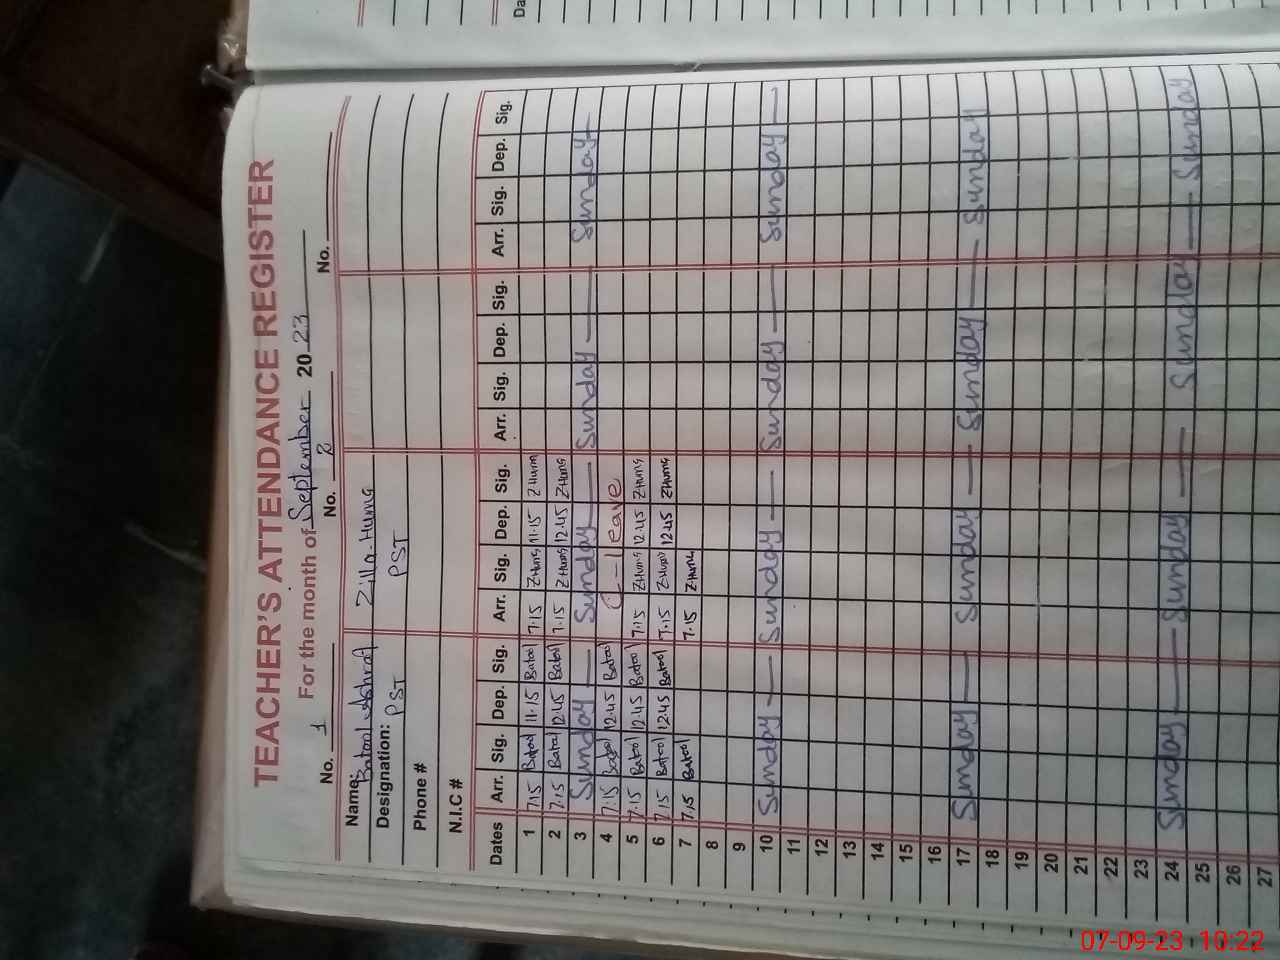 Da
TEACHER'S ATTENDANCE REGISTER
For the month of September 2023
No. 1 No. 2 No.
Name: Batool Ashraf Zilla-Huma
Designation: PST PST
Phone #
N.I.C #
Dates Arr. Sig. Dep. Sig. Arr. Sig. Dep. Sig. Arr. Sig. Dep. Sig. Arr. Sig. Dep. Sig.
1 7.15 Batool 11.15 Batool 7.15 ZHuma 11.15 ZHuma
2 7.15 Batool 12.45 Batool 7.15 ZHuma 12.45 ZHuma
3 Sunday — Sunday — Sunday — Sunday
4 7:15 Batool 12.45 Batool C-leave
5 7.15 Batool 12.45 Batool 7.15 ZHuma 12.45 ZHuma
6 7.15 Batool 12.45 Batool 7.15 ZHuma 12.45 ZHuma
7 7.15 Batool 7.15 ZHuma
8
9
10 Sunday — Sunday — Sunday — Sunday —
11
12
13
14
15
16
17 Sunday — Sunday — Sunday — Sunday
18
19
20
21
22
23
24 Sunday — Sunday — Sunday — Sunday
25
26
27
07-09-23 10:22